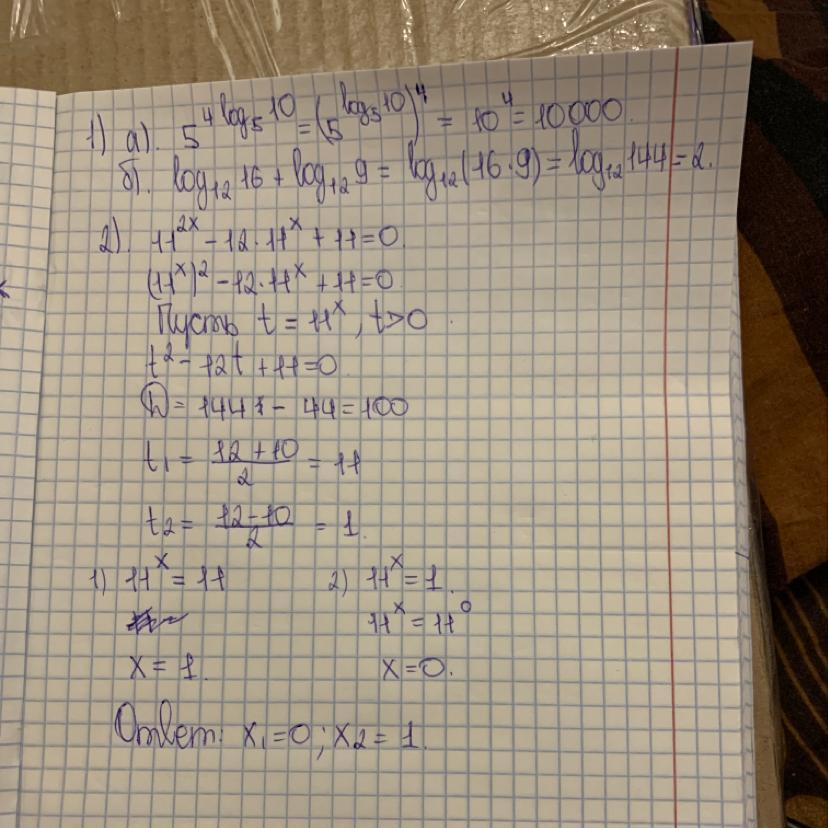 1) а). 5^{4 log_5 10} = (5^{log_5 10})^4 = 10^4 = 10000.
б). log_{12} 16 + log_{12} 9 = log_{12} (16·9) = log_{12} 144 = 2.
2). 11^{2x} - 12·11^x + 11 = 0.
(11^x)^2 - 12·11^x + 11 = 0
Пусть t = 11^x, t > 0.
t^2 - 12t + 11 = 0
D = 144 - 44 = 100
t_1 = \frac{12 + 10}{2} = 11
t_2 = \frac{12 - 10}{2} = 1.
1) 11^x = 11 2) 11^x = 1.
11^x = 11^0
x = 1. x = 0.
Ответ: x_1 = 0; x_2 = 1.